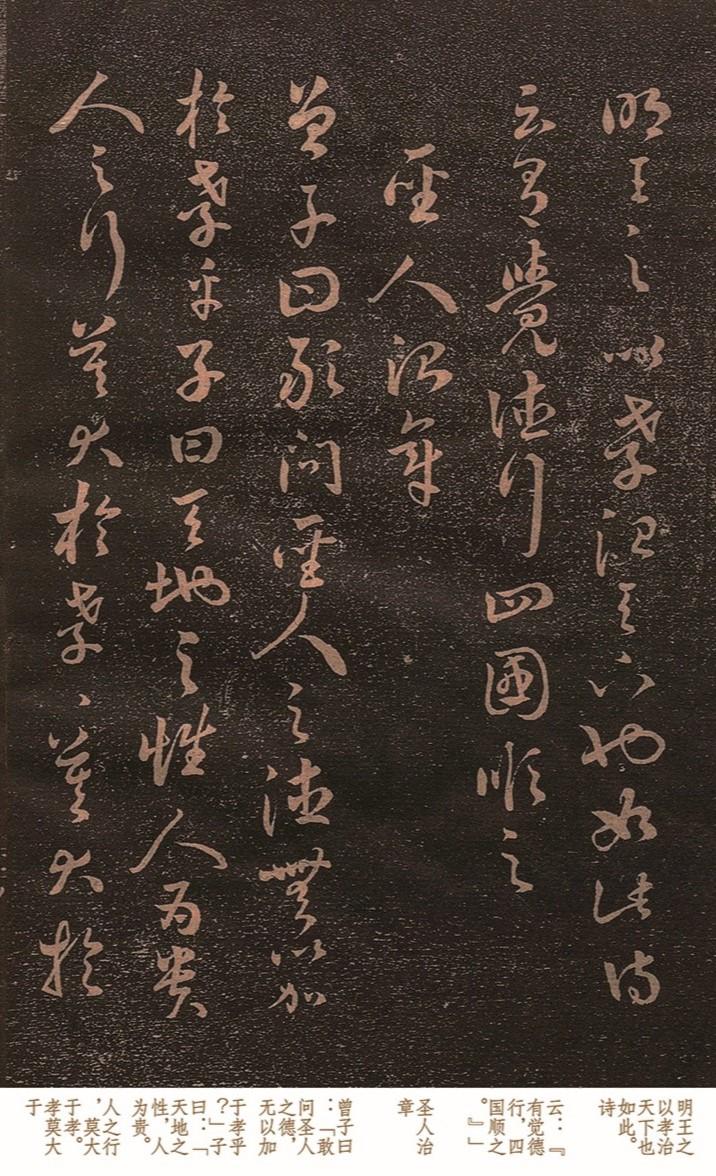 明王之以孝治天下也如此詩
云有覺德行四國順之
聖人治章
曾子曰敢問聖人之德無以加
於孝乎子曰天地之性人為貴
人之行莫大於孝、莫大於
明王之
以孝治
天下也
如此。
诗
云:『
有觉德
行,四
国顺之
。』」
圣人治
章
曾子曰
:「敢
问圣人
之德,
无以加
于孝乎
?」子
曰:「
天地之
性,人
为贵。
人之行
,莫大
于孝。
孝莫大
于